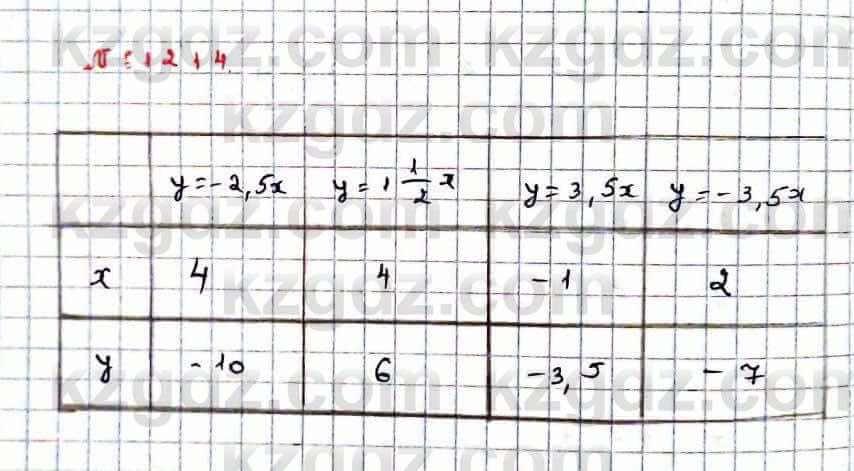 kzgdz.com kzgdz.com
№ 1214.
kzgdz.com
y = -2,5x y = 1 1/2 x y = 3,5x y = -3,5x
kzgdz.com kzgdz.com
x 4 4 -1 2
kzgdz.com
y -10 6 -3,5 -7
kzgdz.com kzgdz.com
kzgdz.com